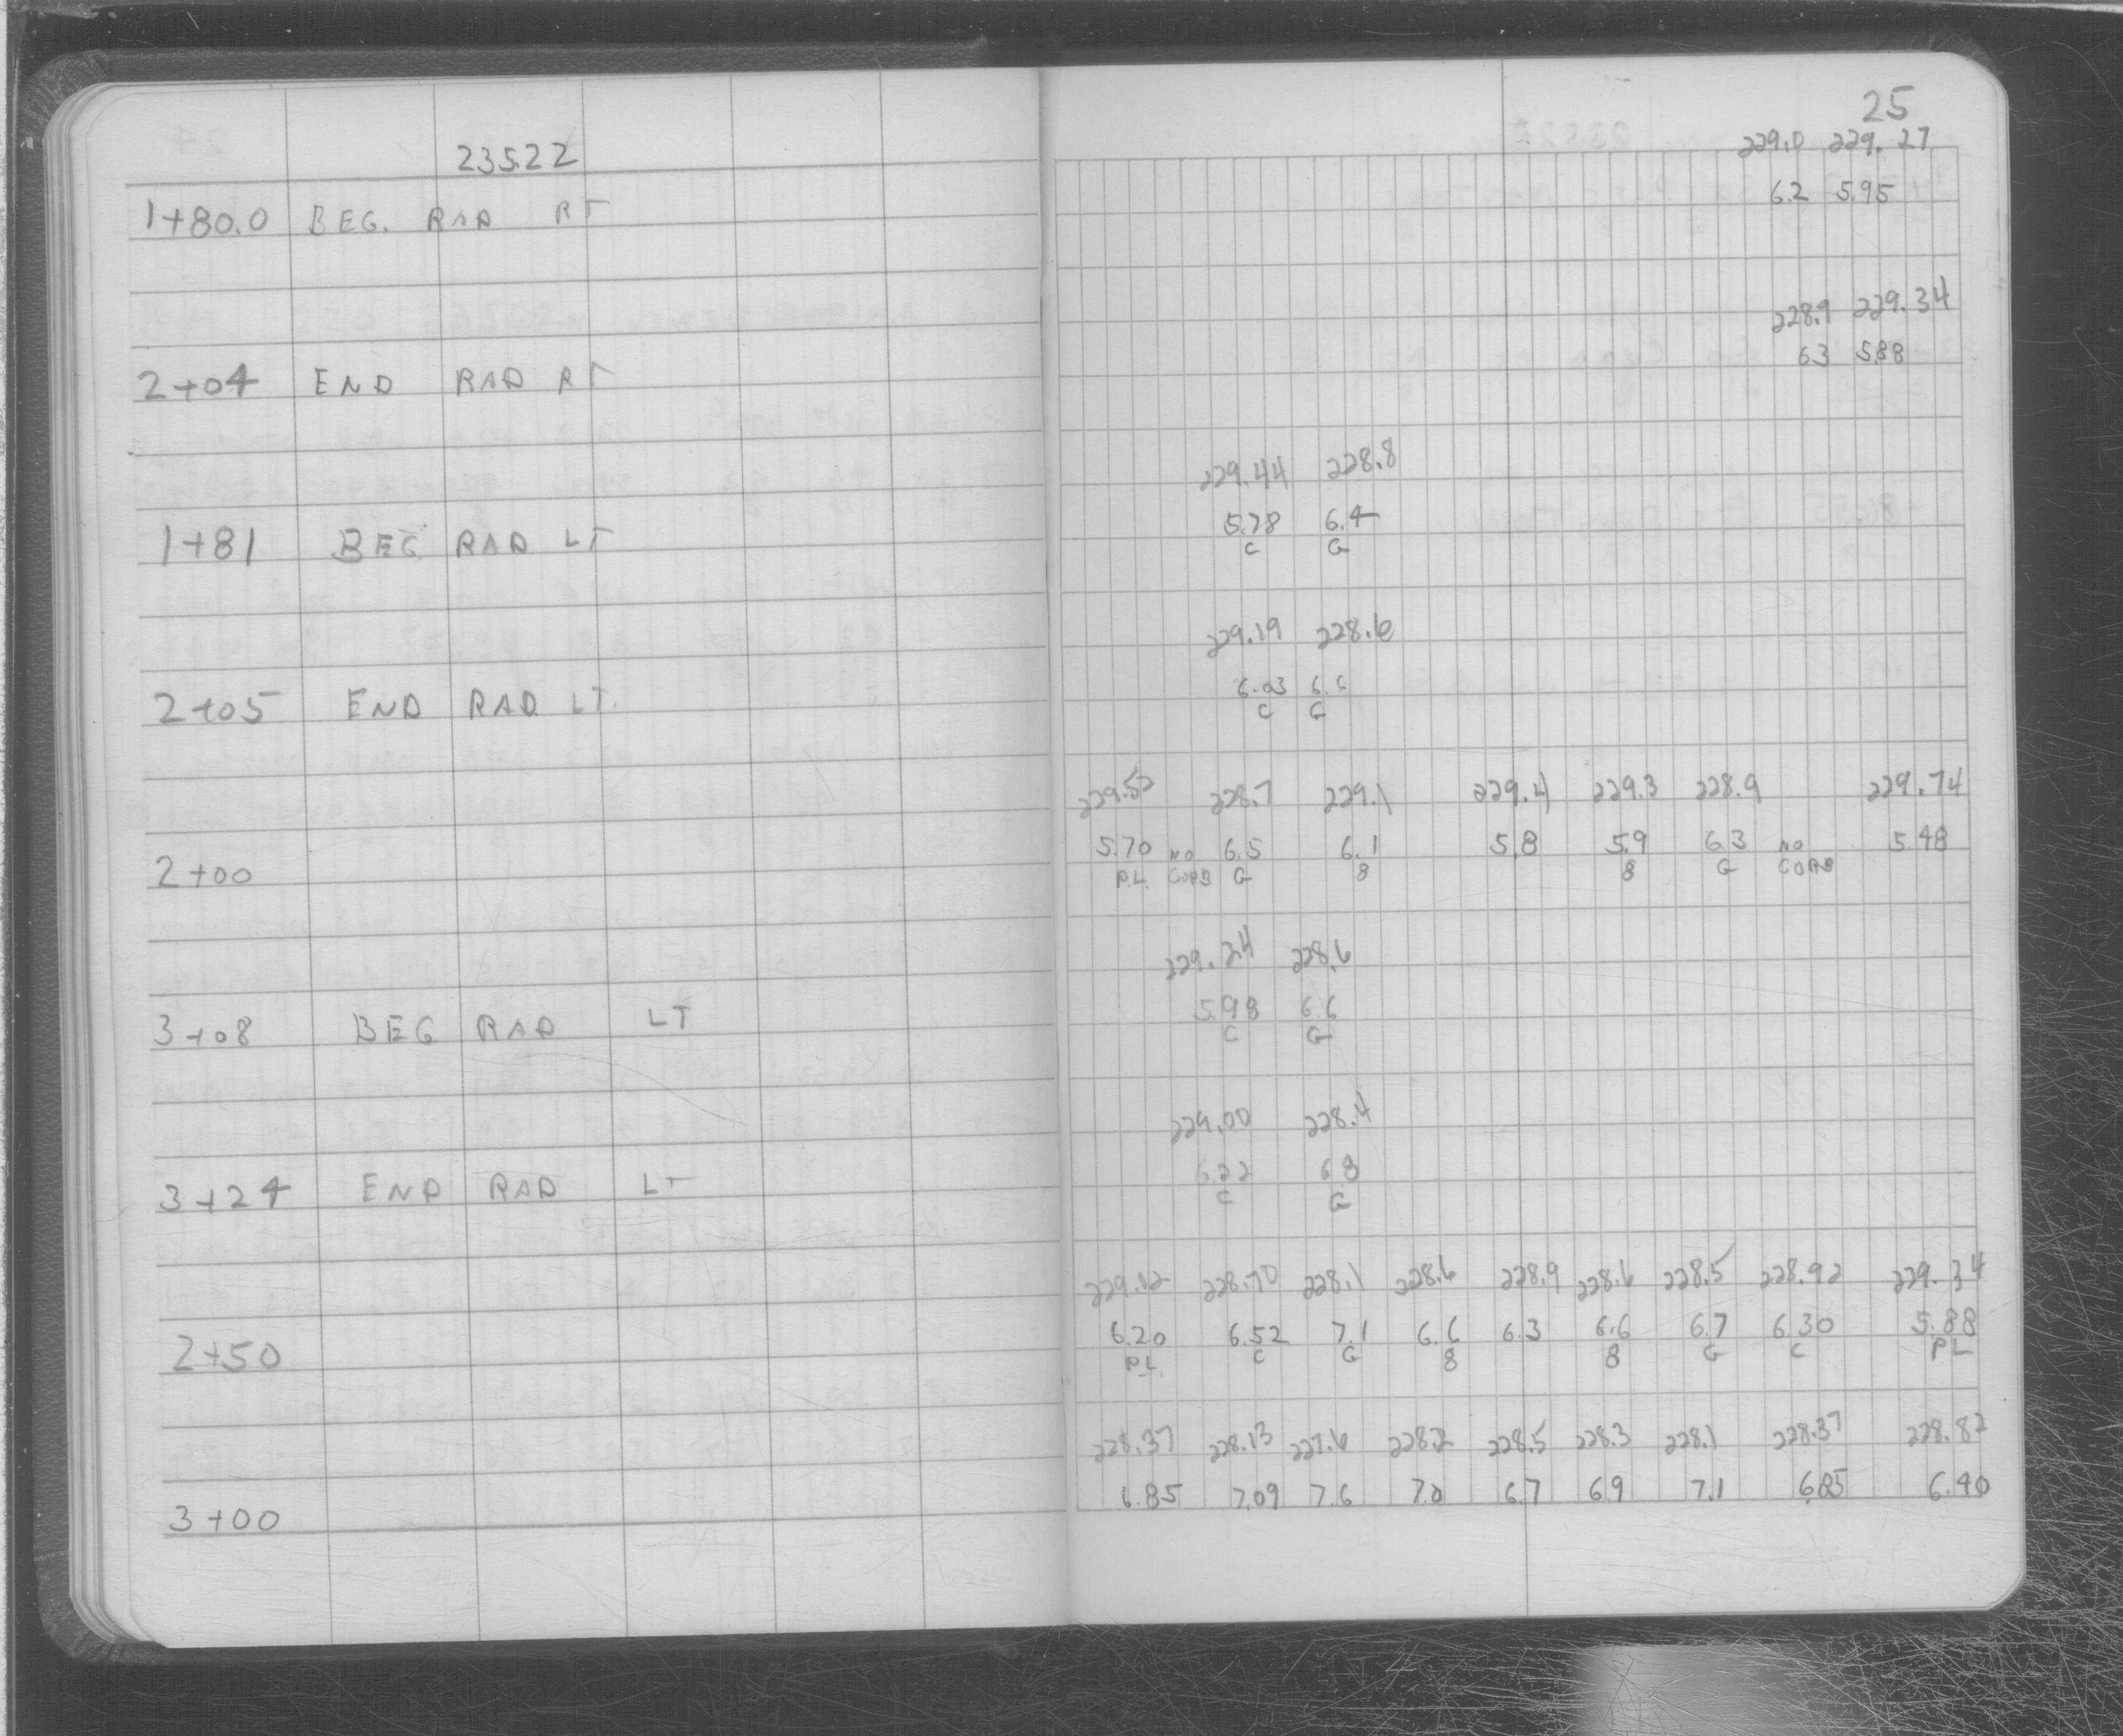 25
235.22
229.0 229.27
1+80.0 BEG. RAD RT 6.2 5.95
228.9 229.34
2+04 END RAD RT 6.3 5.88
229.44 228.8
1+81 BEG RAD LT 5.78 6.4
C G
229.19 228.6
2+05 END RAD LT. 6.03 6.6
C G
229.52 228.7 229.1 229.4 229.3 228.9 229.74
2+00 5.70 no 6.5 6.1 5.8 5.9 6.3 no 5.48
P.L. CORB G 8 8 G CORB
229.24 228.6
3+08 BEG RAD LT 5.98 6.6
C G
229.00 228.4
3+24 END RAD LT 6.22 6.8
C G
228.70 228.1 228.6 228.9 228.6 228.5 228.92 229.34
2+50 6.20 6.52 7.1 6.6 6.3 6.6 6.7 6.30 5.88
P.L. C G 8 8 G C PL
228.37 228.13 227.6 228.2 228.5 228.3 228.1 228.37 228.82
3+00 6.85 7.09 7.6 7.0 6.7 6.9 7.1 6.85 6.40